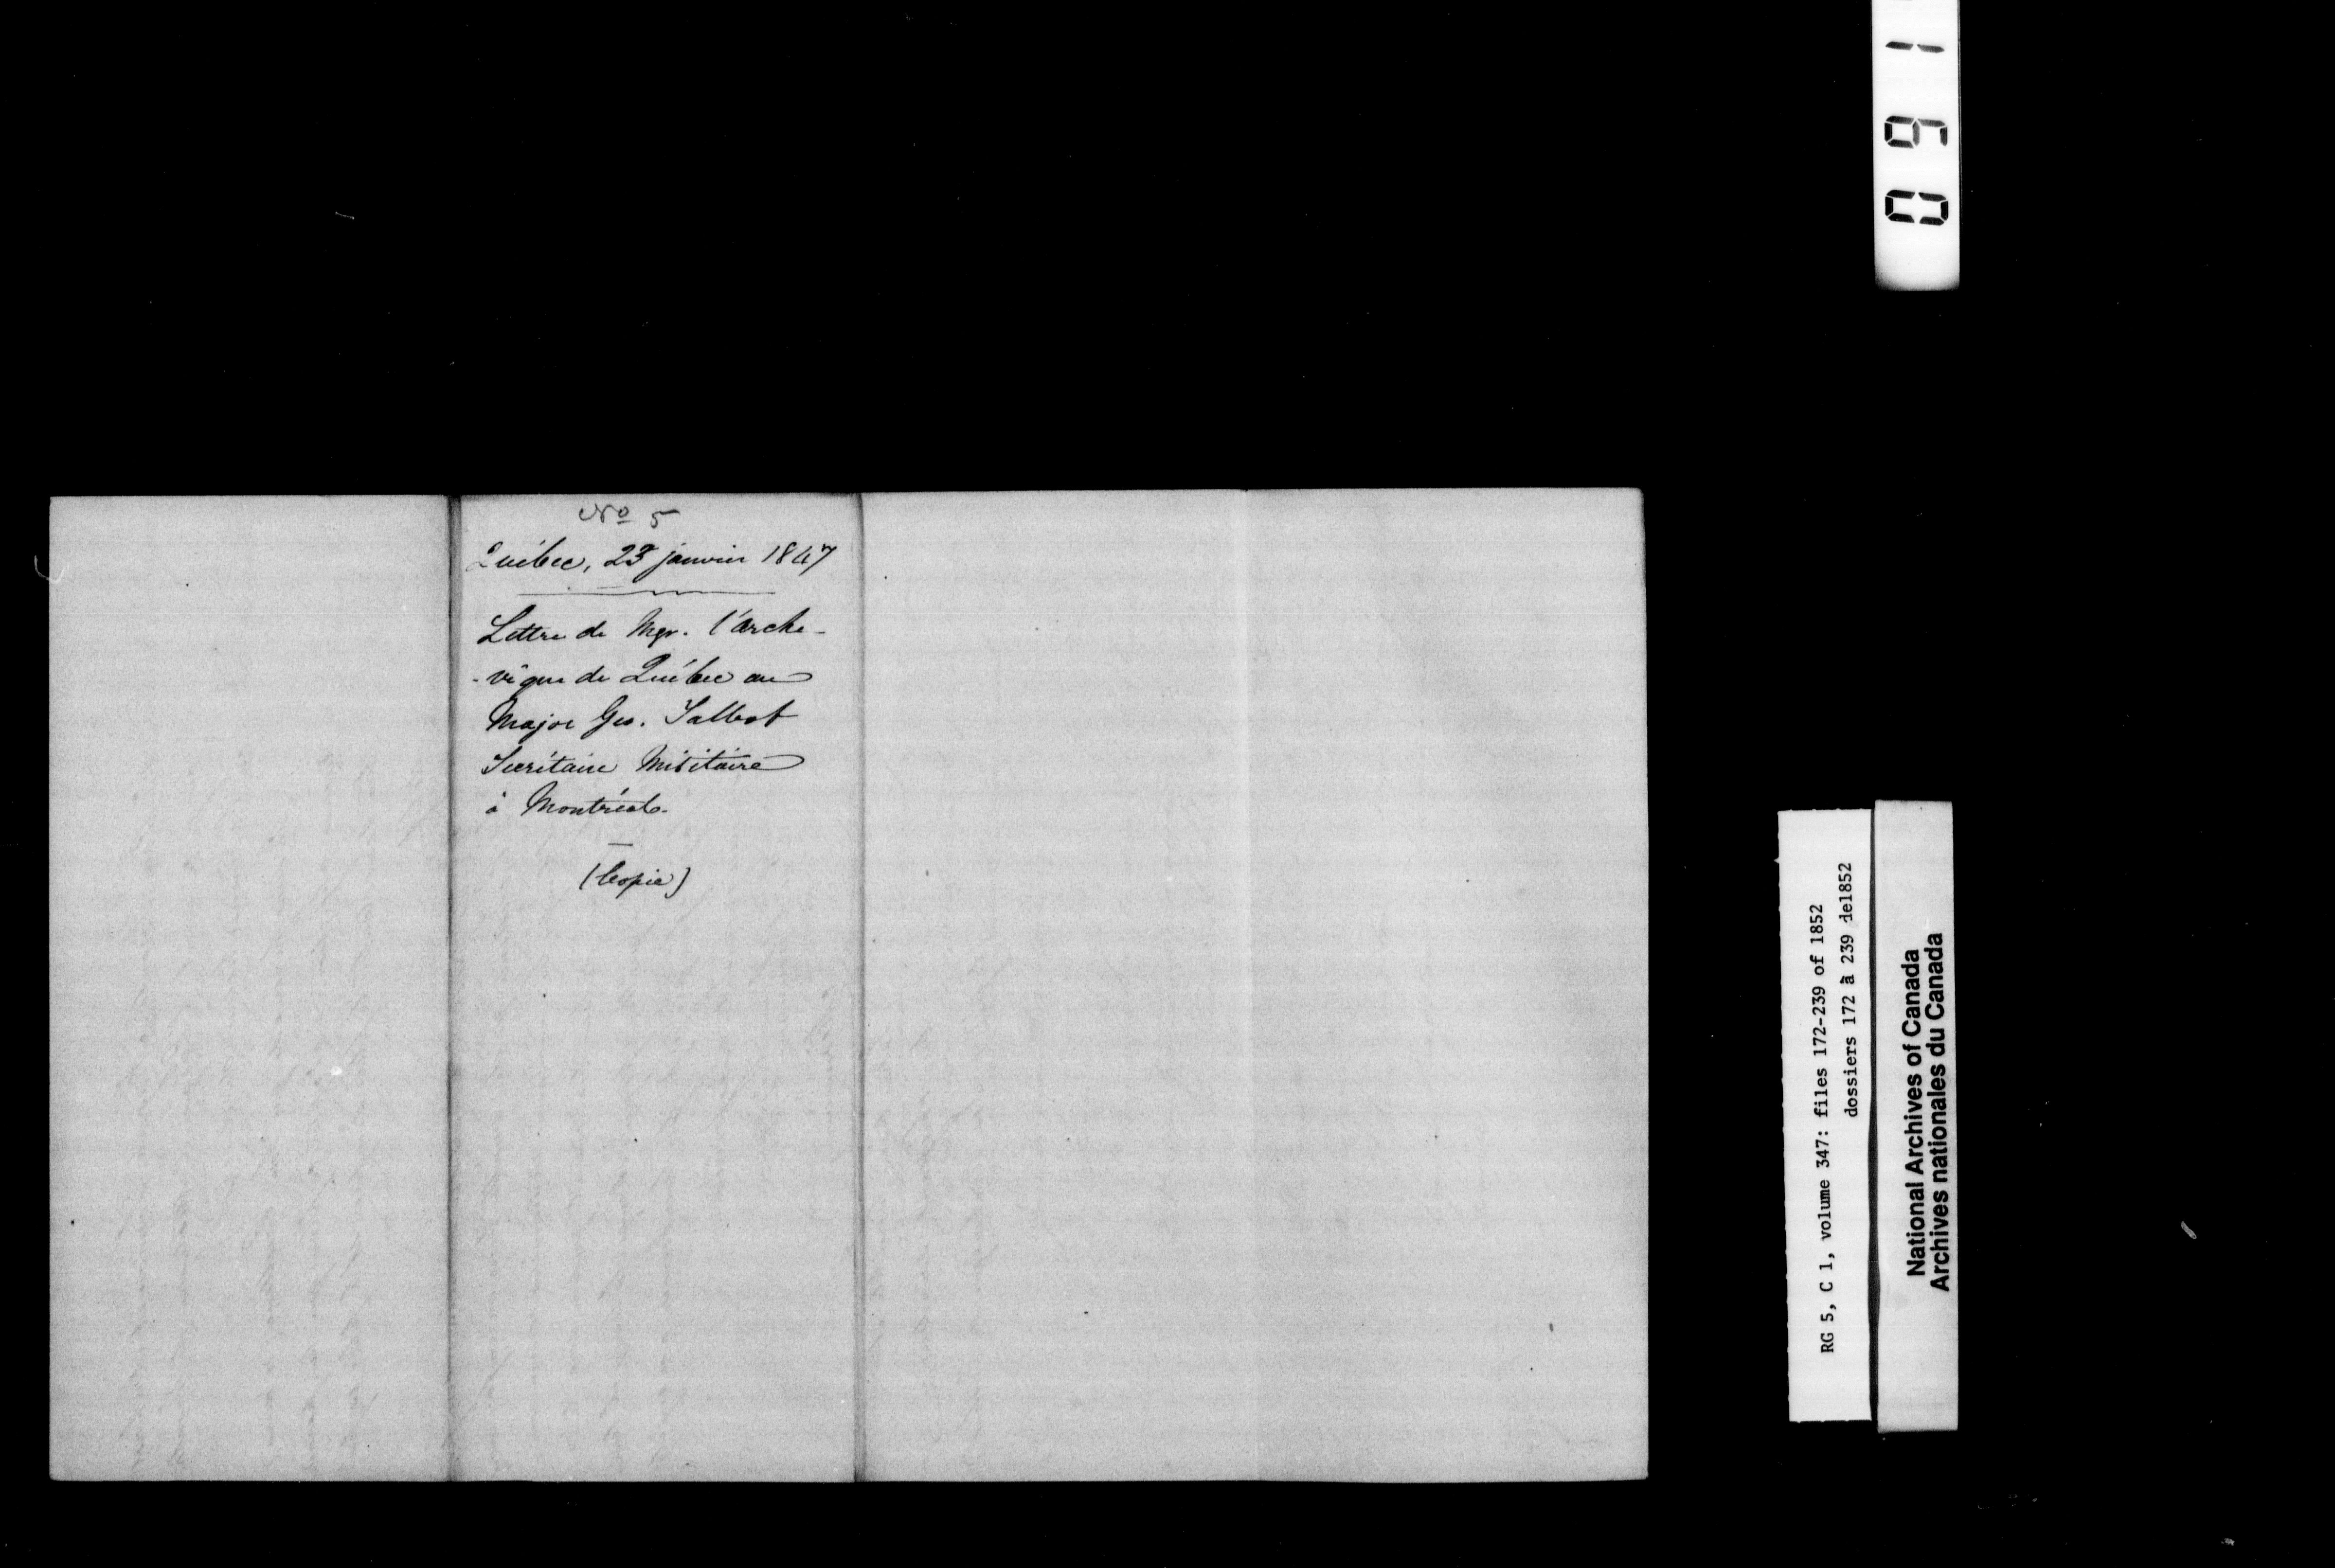 No 5
Québec, 23 janvier 1847
Lettre de Mgr. l'arche-
-vêque de Québec au
Major Geo. Talbot
Secrétaire Militaire
à Montréal.
(Copie)
RG 5, C 1, volume 347: files 172-239 of 1852
dossiers 172 à 239 de1852
National Archives of Canada
Archives nationales du Canada